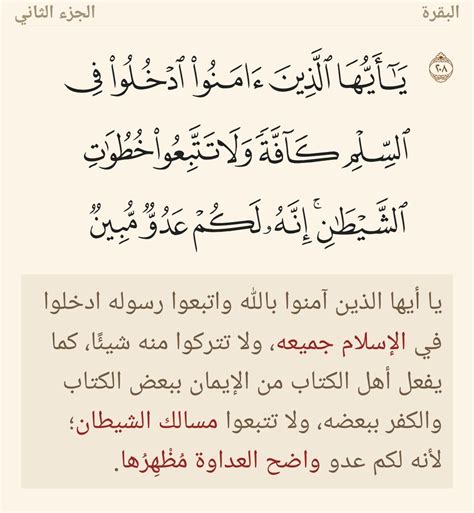 البقرة الجزء الثاني
٢٠٨ يَٰٓأَيُّهَا ٱلَّذِينَ ءَامَنُواْ ٱدۡخُلُواْ فِي
ٱلسِّلۡمِ كَآفَّةٗ وَلَا تَتَّبِعُواْ خُطُوَٰتِ
ٱلشَّيۡطَٰنِۚ إِنَّهُۥ لَكُمۡ عَدُوّٞ مُّبِينٞ
يا أيها الذين آمنوا بالله واتبعوا رسوله ادخلوا
في الإسلام جميعه، ولا تتركوا منه شيئًا، كما
يفعل أهل الكتاب من الإيمان ببعض الكتاب
والكفر ببعضه، ولا تتبعوا مسالك الشيطان؛
لأنه لكم عدو واضح العداوة مُظْهِرُها.